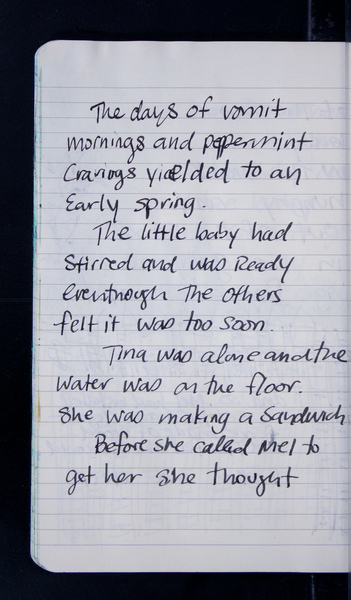 The days of vomit
mornings and peppermint
Cravings yielded to an
Early spring.
The little baby had
stirred and was Ready
eventhough The others
felt it was too soon.
Tina was alone and the
water was on the floor.
She was making a Sandwich
Before she called Mel to
get her she thought